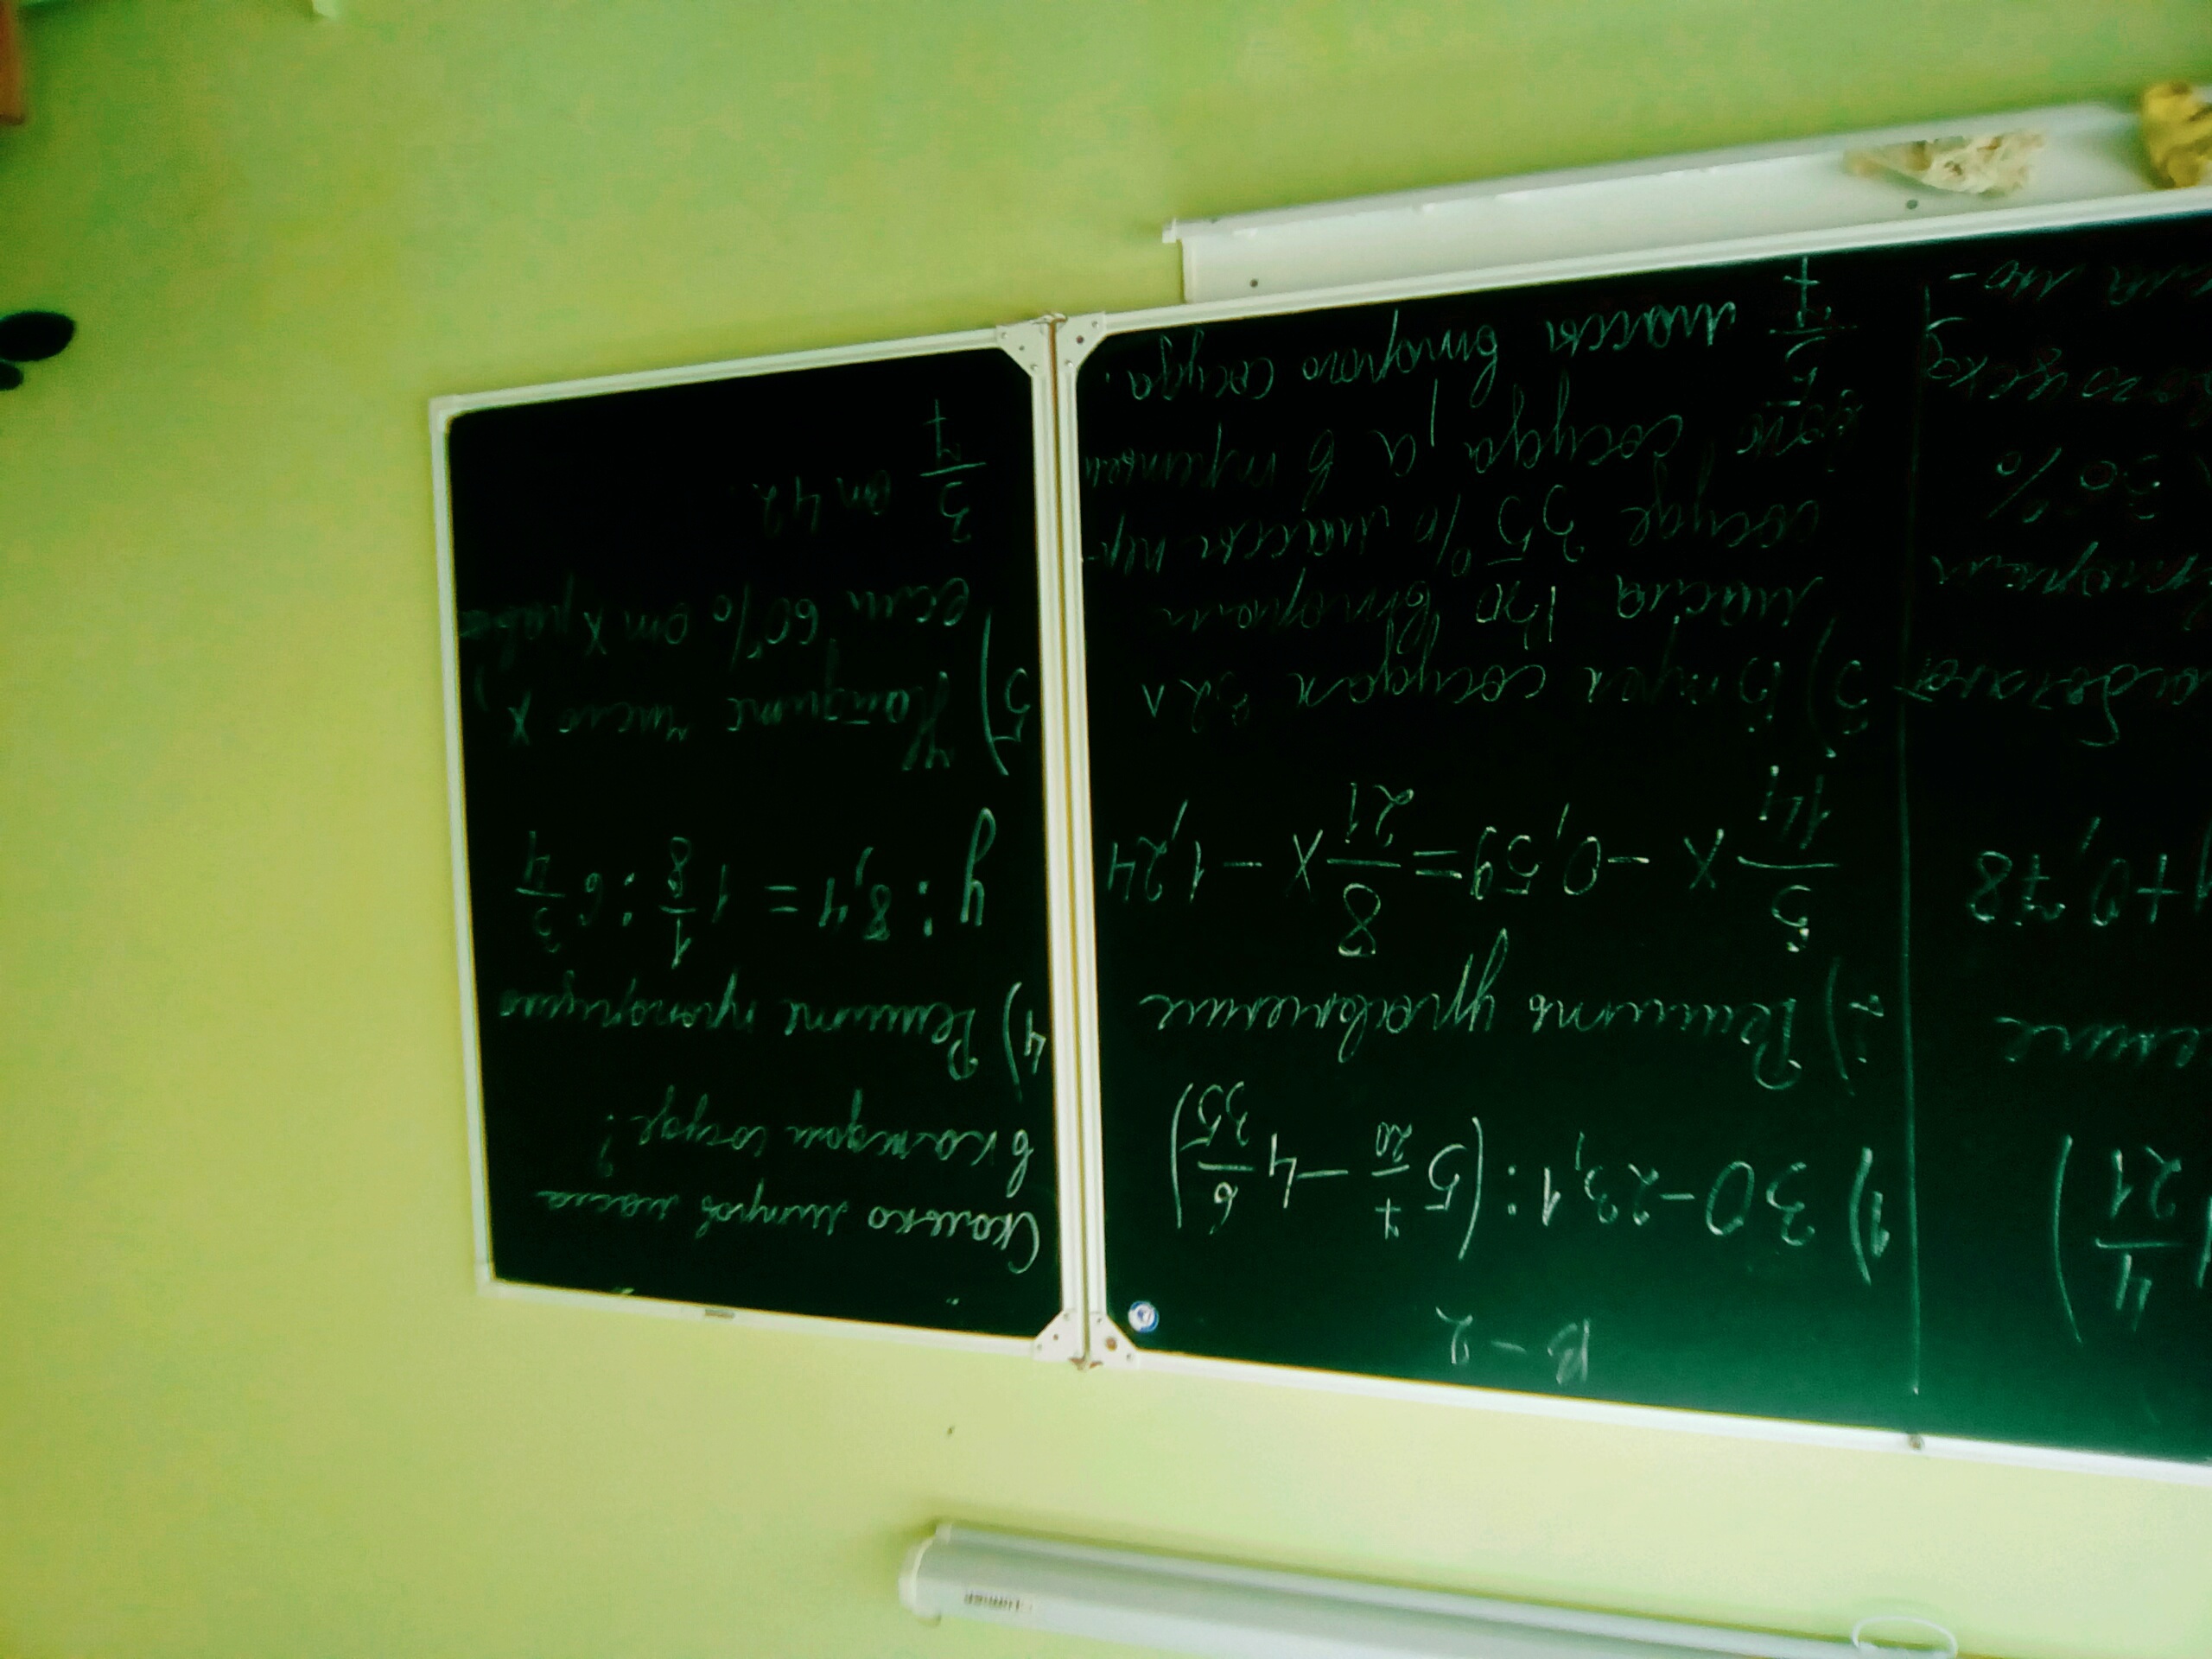 В-2
1) 30-23,1:(5 7/20 - 4 6/35)
2) Решить уравнение
5/14 х - 0,59 = 8/21 х - 1,24
3) В трех сосудах 32л
масла Во втором
сосуде 35% массы пер-
вого сосуда, а в третьем
5/7 массы второго сосуда.
Сколько литров масла
в каждом сосуде?
4) Решите пропорцию
у : 8,4 = 1 1/8 : 6 3/4
5) Найдите число х,
если 60% от х равно
3/7 от 42.
4/21)
ение
+0,78
втором
30%